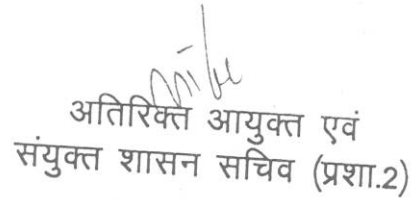 अतिरिक्त आयुक्त एवं
संयुक्त शासन सचिव (प्रशा.2)